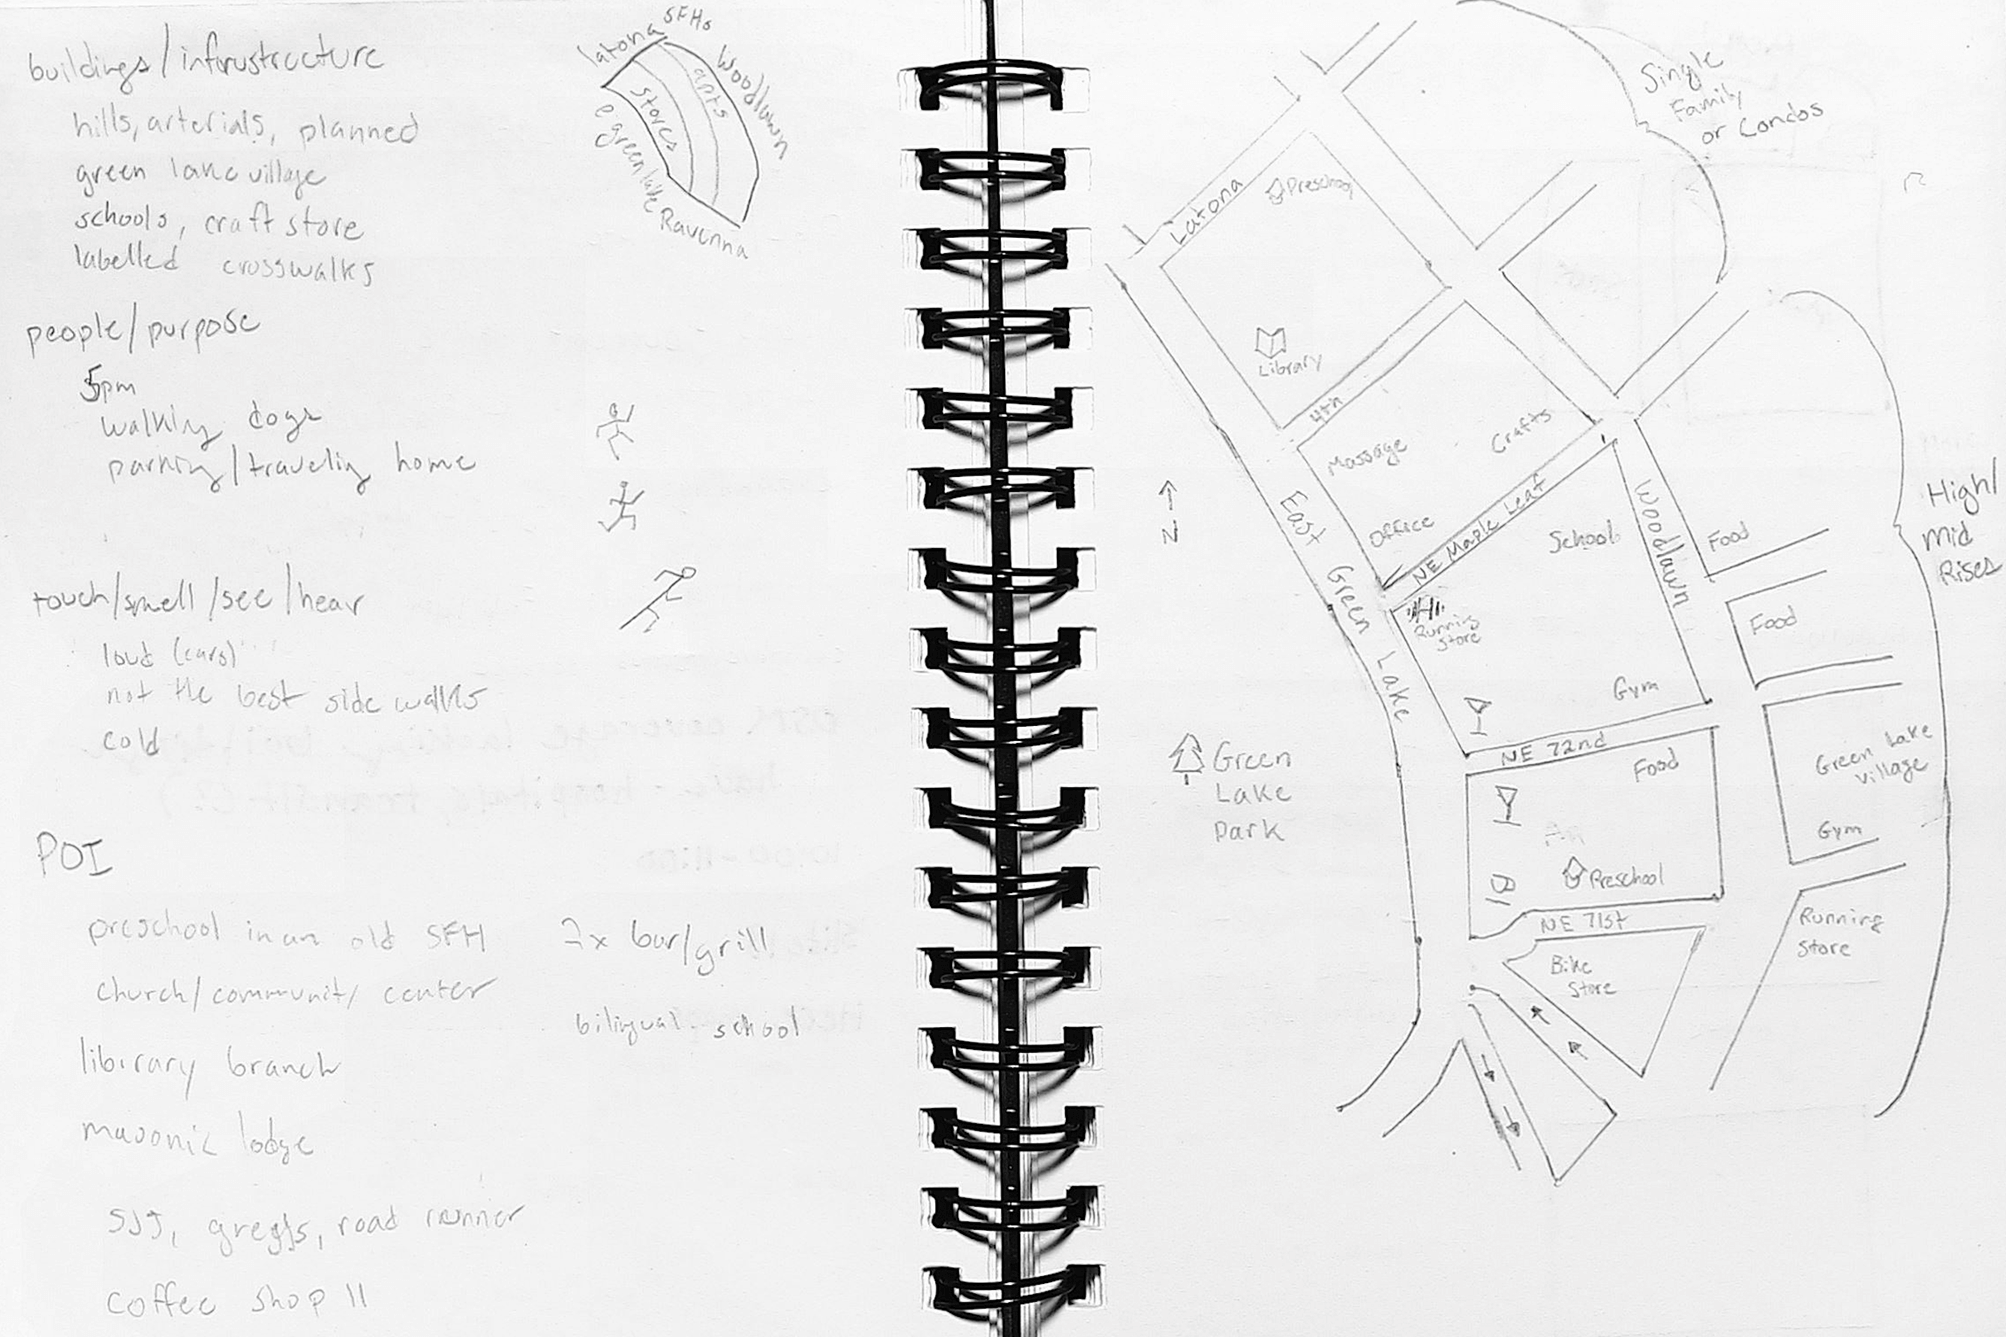 buildings/infrustructure
hills, arterials, planned
green lake village
schools, craft store
labelled crosswalks
people/purpose
5pm
walking dogs
parking/traveling home
touch/smell/see/hear
loud (cars)
not the best side walks
cold
POI
preschool in an old SFH
church/community center
library branch
masonic lodge
greggs, road runner
coffee shop II
bar/grill
bilingual school
latona
SFHs
Woodlawn
apts
stores
e greenlake
Ravenna
Single
Family
or Condos
Latona
Preschool
Library
4th
Massage
Crafts
Office
NE Maple Leaf
East Green Lake
N
School
Woodlawn
Food
Food
High/
Mid
Rises
Running
Store
Gym
NE 72nd
Green
Lake
Park
Food
Green Lake
Village
Gym
Preschool
NE 71st
Bike
Store
Running
Store